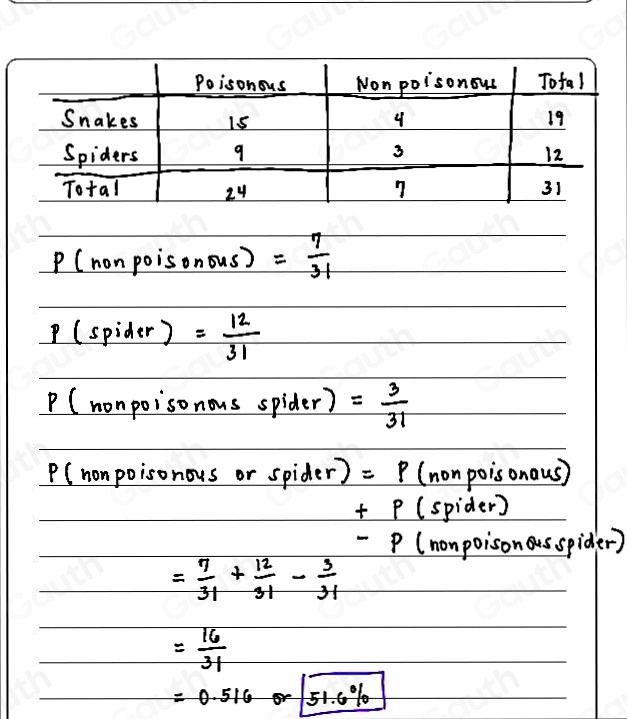 Poisonous Nonpoisonous Total
Snakes 15 4 19
Spiders 9 3 12
Total 24 7 31
P(nonpoisonous) = 7/31
P(spider) = 12/31
P(nonpoisonous spider) = 3/31
P(nonpoisonous or spider) = P(nonpoisonous)
+ P(spider)
- P(nonpoisonous spider)
= 7/31 + 12/31 - 3/31
= 16/31
= 0.516 or 51.6%